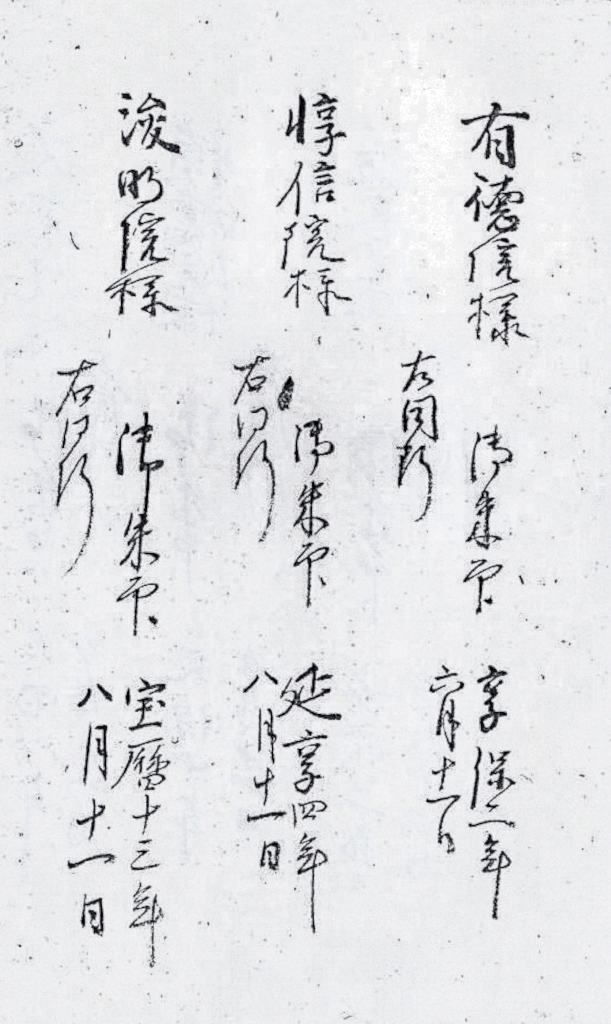 有徳院様　御朱印　享保二年
六月十一日
右同断
惇信院様　御朱印　延享四年
八月十一日
右同断
浚明院様　御朱印　宝暦十三年
八月十一日
右同断